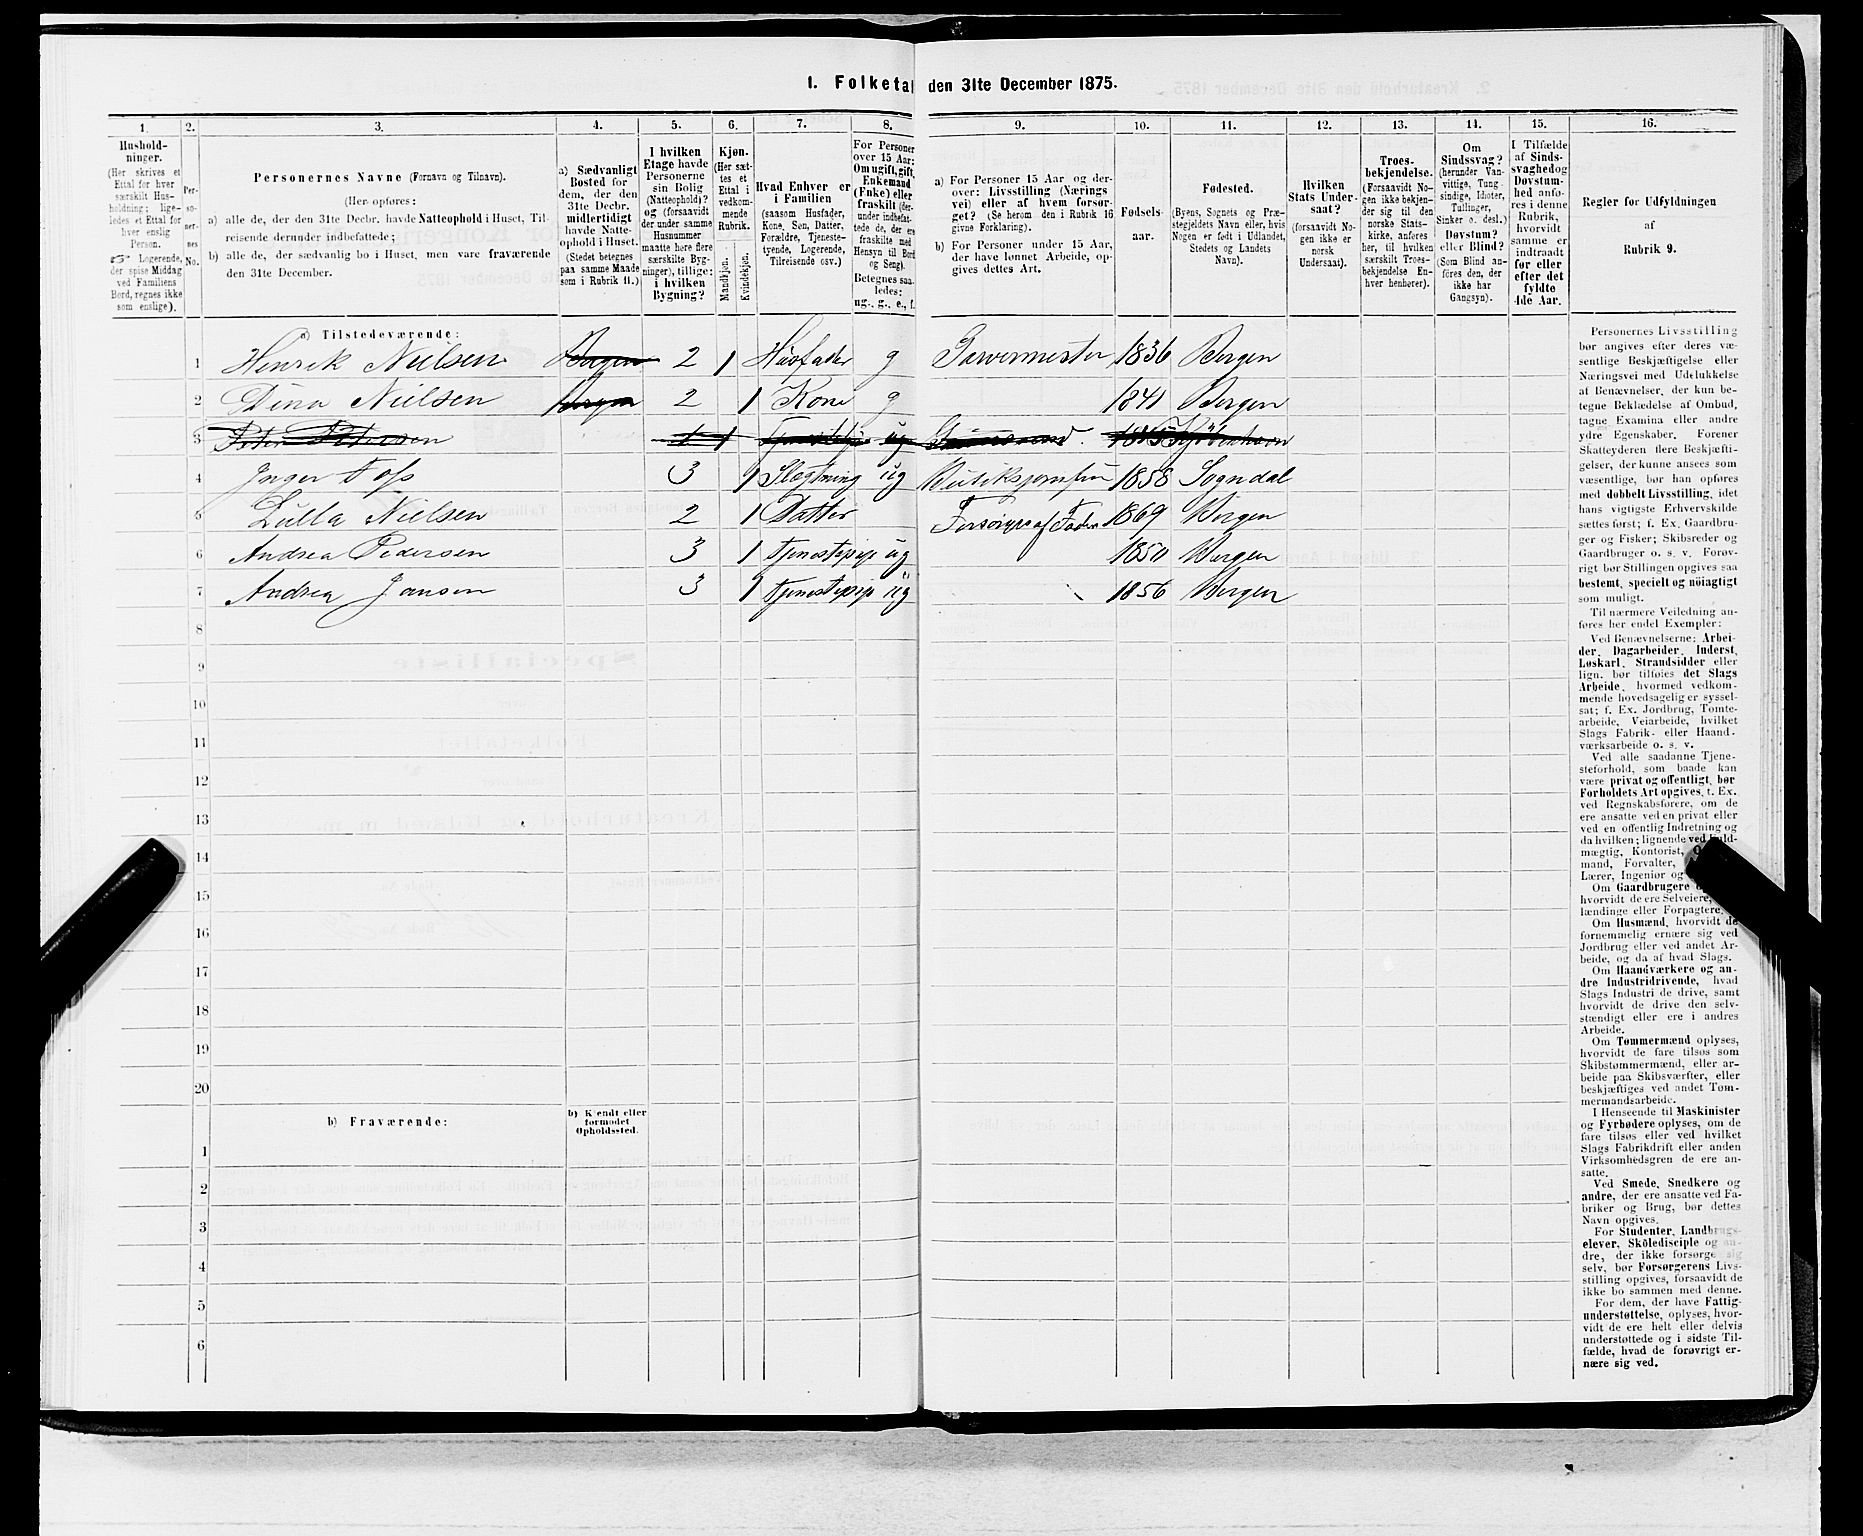 1. Folketal den 31te December 1875.
1. 2. 3. 4. 5. 6. 7. 8. 9. 10. 11. 12. 13. 14. 15. 16.
Hushold-
ninger.
(Her skrives et
Ettal for hver
særskilt Hus-
holdning; lige-
ledes et Ettal for
hver enslig
Person.
Logerende,
der spise Middag
ved Familiens
Bord, regnes ikke
som enslige).
Per-
so-
ner-
nes
No.
Personernes Navne (Fornavn og Tilnavn).
(Her opføres:
a) alle de, der den 31te Decbr. havde Natteophold i Huset, Til-
reisende derunder indbefattede;
b) alle de, der sædvanlig bo i Huset, men vare fraværende
den 31te December.
a) Sædvanligt
Bosted for
dem, der den
31te Decbr.
midlertidigt
havde Natte-
ophold i Huset.
(Stedet betegnes
paa samme Maade
som i Rubrik 11.)
I hvilken
Etage havde
Personerne
sin Bolig
(Natteophold)?
og (forsaavidt
der under samme
Husnummer
maatte høre flere
særskilte Byg-
ninger), tillige:
i hvilken
Bygning?
Kjøn.
(Her sæt-
tes et
Ettal i
vedkom-
mende
Rubrik.
Mandkjøn.
Kvindekjøn.
Hvad Enhver er
i Familien
(saasom Husfader,
Kone, Søn, Datter,
Forældre, Tjeneste-
tyende, Logerende,
Tilreisende osv.)
For Personer
over 15 Aar:
Om ugift, gift,
Enkemand
(Enke) eller
fraskilt (der-
under indbefat-
tede de, der ere
fraskilte med
Hensyn til Bord
og Seng).
Betegnes saa-
ledes:
ug., g., e., f.
a) For Personer 15 Aar og der-
over: Livsstilling (Nærings
vei) eller af hvem forsør-
get? (Se herom den i Rubrik 16
givne Forklaring).
b) For Personer under 15 Aar,
der have lønnet Arbeide, op-
gives dettes Art.
Fødsels-
aar.
Fødested.
(Byens, Sognets og Præ-
stegjeldets Navn eller, hvis
Nogen er født i Udlandet,
Stedets og Landets
Navn).
Hvilken
Stats Under-
saat?
(forsaavidt No-
gen ikke er
norsk
Undersaat).
Troes-
bekjendelse.
(Forsaavidt No-
gen ikke bekjen-
der sig til den
norske Stats-
kirke, anføres
her, til hvilken
særskilt Troes-
bekjendelse En-
hver henhører).
Om
Sindssvag?
(herunder Van-
vittige, Tung-
sindige, Idioter,
Tullinger,
Sinker o. desl.)
Døvstum?
eller Blind?
(Som Blind an-
føres den, der
ikke har
Gangsyn).
I Tilfælde
af Sinds-
svaghed og
Døvstum-
hed anfø-
res i denne
Rubrik,
hvorvidt
samme er
indtraadt
før eller
efter det
fyldte
4de Aar.
Regler for Udfyldningen
af
Rubrik 9.
a) Tilstedeværende:
1 Henrik Nielsen Bergen 2 1 Husfader g Garvermester 1836 Bergen
2 Dina Nielsen Bergen 2 1 Kone g 1841 Bergen
3 Peter Petersen 1 1 ug Kjøbenhavn
4 Inger Foss 3 1 Slegtning ug Butiksjomfru 1858 Sogndal
5 Lulla Nielsen 2 1 Datter Forsørges af Fader 1869 Bergen
6 Andrea Pedersen 3 1 Tjenestepige ug 1850 Bergen
7 Andrea Jansen 3 1 Tjenestepige ug 1856 Bergen
8
9
10
11
12
13
14
15
16
17
18
19
20
b) Fraværende:
b) Kjendt eller
formodet
Opholdssted.
1
2
3
4
5
6
Personernes Livsstilling
bør angives efter deres væ-
sentlige Beskjæftigelse eller
Næringsvei med Udelukkelse
af Benævnelser, der kun be-
tegne Beklædelse af Ombud,
tagne Examina eller andre
ydre Egenskaber. Forener
Skatteyderen flere Beskjæfti-
gelser, der kunne ansees som
væsentlige, bør han opføres
med dobbelt Livsstilling, idet
hans vigtigste Erhvervskilde
sættes først; f. Ex. Gaardbru-
ger og Fisker; Skibsreder og
Gaardbruger o. s. v. Forøv-
rigt bør Stillingen opgives saa
bestemt, specielt og nöiagtigt
som muligt.
Til nærmere Veiledning an-
føres her endel Exempler:
Ved Benævnelserne: Arbei-
der, Dagarbeider, Inderst,
Løskarl, Strandsidder eller
lign. bør tilføies det Slags
Arbeide, hvormed vedkom-
mende hovedsagelig er syssel-
sat; f. Ex. Jordbrug, Tomte-
arbeide, Veiarbeide, hvilket
Slags Fabrik- eller Haand-
værksarbeide o. s. v.
Ved alle saadanne Tjene-
steforhold, som baade kan
være privat og offentligt, bør
Forholdets Art opgives, t. Ex.
ved Regnskabsførere, om de
ere ansatte ved en privat eller
ved en offentlig Indretning og
da hvilken; lignende ved Fuld-
mægtig, Kontorist,
mand, Forvalter,
Lærer, Ingeniør og
Om Gaardbrugere
hvorvidt de ere Selveiere,
lændinge eller Forpagtere.
Om Husmænd, hvorvidt de
fornemmelig ernære sig ved
Jordbrug eller ved andet Ar-
beide, og da af hvad Slags.
Om Haandværkere og an-
dre Industridrivende, hvad
Slags Industri de drive, samt
hvorvidt de drive den selv-
stændigt eller ere i andres
Arbeide.
Om Tømmermænd oplyses,
hvorvidt de fare tilsøs som
Skibstømmermænd, eller ar-
beide paa Skibsværfter, eller
beskjæftiges ved andet Tøm-
mermandsarbeide.
I Henseende til Maskinister
og Fyrbødere oplyses, om de
fare tilsøs eller ved hvilket
Slags Fabrikdrift eller anden
Virksomhedsgren de ere an-
satte.
Ved Smede, Snedkere og
andre, der ere ansatte ved Fa-
briker og Brug, bør dettes
Navn opgives.
For Studenter, Landbrugs-
elever, Skoledisciple og an-
dre, der ikke forsørge sig
selv, bør Forsørgerens Livs-
stilling opgives, forsaavidt de
ikke bo sammen med denne.
For dem, der have Fattig-
understøttelse, oplyses, hvor-
vidt de ere helt eller delvis
understøttede og i sidste Til-
fælde, hvad de forøvrigt er-
nære sig ved.